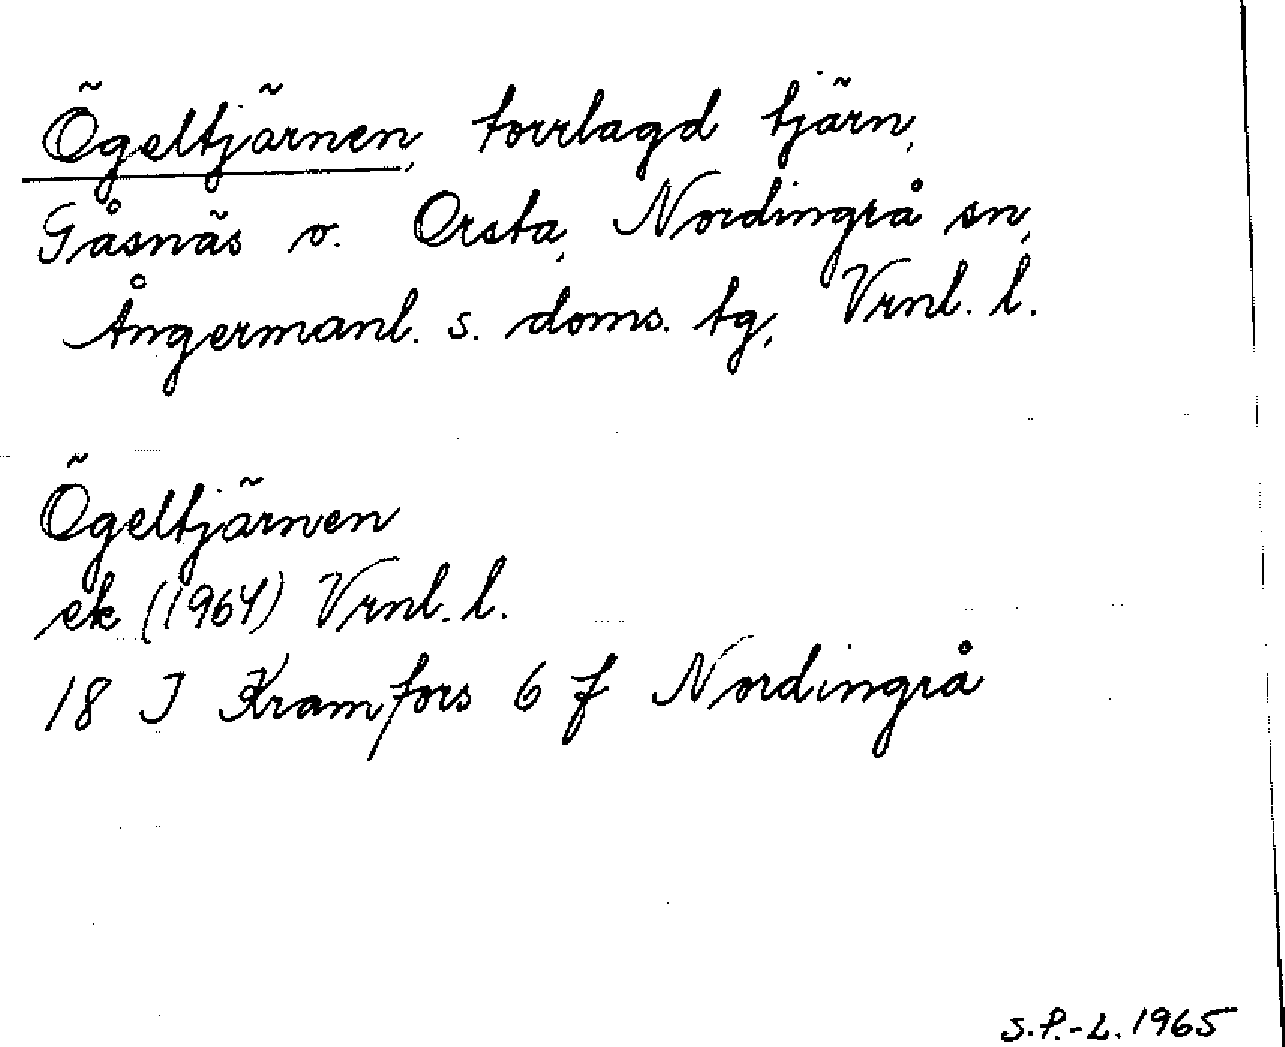 Ögeltjärnen, torrlagd tjärn,
Gåsnäs o. Orsta, Nordingrå sn,
Ångermanl. s. doms. tg, Vrnl. l.
Ögeltjärnen
ek (1964) Vrnl. l.
18 I Kramfors 6 f Nordingrå
S.P.-L. 1965